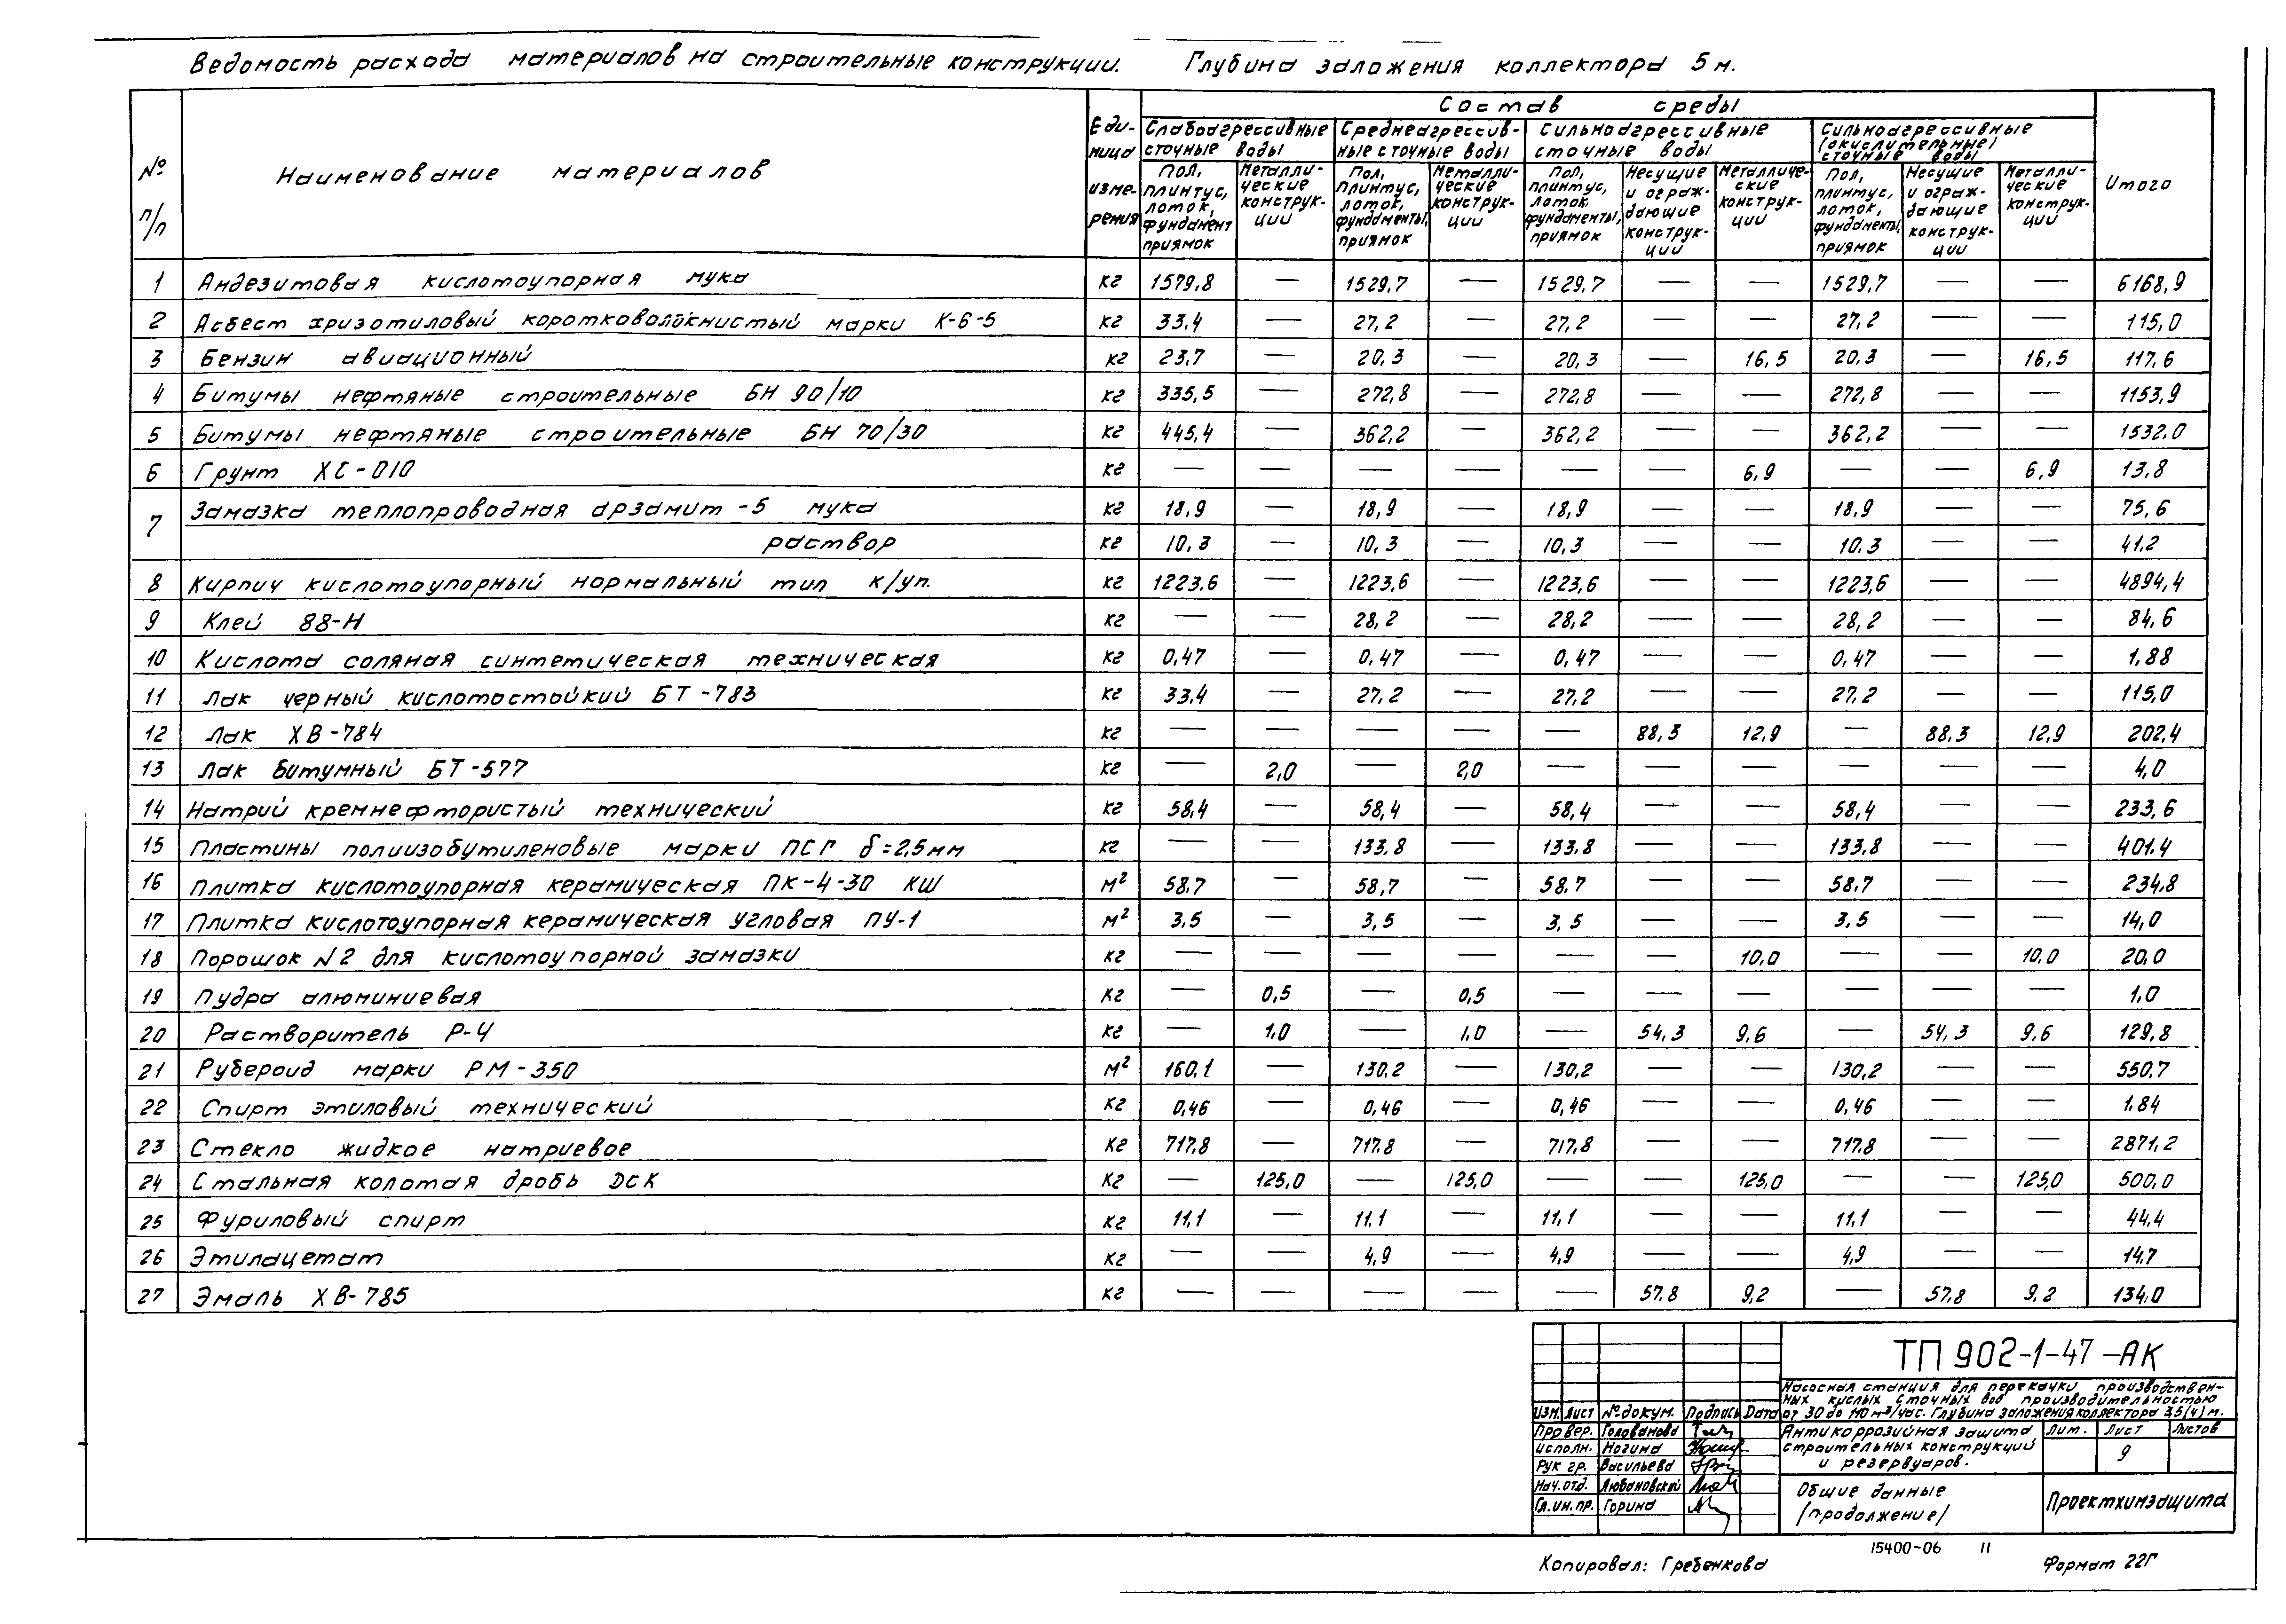 Ведомость расхода материалов на строительные конструкции. Глубина заложения коллектора 5 м.
№ п/п
Наименование материалов
Единица измерения
Состав среды
Итого
Слабоагрессивные сточные воды
Среднеагрессивные сточные воды
Сильноагрессивные сточные воды
Сильноагрессивные (окислительные) сточные воды
Пол, плинтус, лоток, фундамент приямок
Металлические конструкции
Пол, плинтус, лоток, фундаменты, приямок
Металлические конструкции
Пол, плинтус, лоток, фундаменты, приямок
Несущие и ограждающие конструкции
Металлические конструкции
Пол, плинтус, лоток, фундаменты, приямок
Несущие и ограждающие конструкции
Металлические конструкции
1 Андезитовая кислотоупорная мука кг 1579,8 — 1529,7 — 1529,7 — — 1529,7 — — 6168,9
2 Асбест хризотиловый коротковолокнистый марки К-6-5 кг 33,4 — 27,2 — 27,2 — — 27,2 — — 115,0
3 Бензин авиационный кг 23,7 — 20,3 — 20,3 — 16,5 20,3 — 16,5 117,6
4 Битумы нефтяные строительные БН 90/10 кг 335,5 — 272,8 — 272,8 — — 272,8 — — 1153,9
5 Битумы нефтяные строительные БН 70/30 кг 445,4 — 362,2 — 362,2 — — 362,2 — — 1532,0
6 Грунт ХС-010 кг — — — — — — 6,9 — — 6,9 13,8
7 Замазка теплопроводная арзамит-5 мука кг 18,9 — 18,9 — 18,9 — — 18,9 — — 75,6
раствор кг 10,3 — 10,3 — 10,3 — — 10,3 — — 41,2
8 Кирпич кислотоупорный нормальный тип к/уп. кг 1223,6 — 1223,6 — 1223,6 — — 1223,6 — — 4894,4
9 Клей 88-Н кг — — 28,2 — 28,2 — — 28,2 — — 84,6
10 Кислота соляная синтетическая техническая кг 0,47 — 0,47 — 0,47 — — 0,47 — — 1,88
11 Лак черный кислотостойкий БТ-783 кг 33,4 — 27,2 — 27,2 — — 27,2 — — 115,0
12 Лак ХВ-784 кг — — — — — 88,3 12,9 — 88,3 12,9 202,4
13 Лак битумный БТ-577 кг — 2,0 — 2,0 — — — — — — 4,0
14 Натрий кремнефтористый технический кг 58,4 — 58,4 — 58,4 — — 58,4 — — 233,6
15 Пластины полиизобутиленовые марки ПСГ δ=2,5мм кг — — 133,8 — 133,8 — — 133,8 — — 401,4
16 Плитка кислотоупорная керамическая ПК-4-30 КШ м² 58,7 — 58,7 — 58,7 — — 58,7 — — 234,8
17 Плитка кислотоупорная керамическая угловая ПУ-1 м² 3,5 — 3,5 — 3,5 — — 3,5 — — 14,0
18 Порошок N2 для кислотоупорной замазки кг — — — — — — 10,0 — — 10,0 20,0
19 Пудра алюминиевая кг — 0,5 — 0,5 — — — — — — 1,0
20 Растворитель Р-4 кг — 1,0 — 1,0 — 54,3 9,6 — 54,3 9,6 129,8
21 Рубероид марки РМ-350 м² 160,1 — 130,2 — 130,2 — — 130,2 — — 550,7
22 Спирт этиловый технический кг 0,46 — 0,46 — 0,46 — — 0,46 — — 1,84
23 Стекло жидкое натриевое кг 717,8 — 717,8 — 717,8 — — 717,8 — — 2871,2
24 Стальная колотая дробь ДСК кг — 125,0 — 125,0 — — 125,0 — — 125,0 500,0
25 Фуриловый спирт кг 11,1 — 11,1 — 11,1 — — 11,1 — — 44,4
26 Этилацетат кг — — 4,9 — 4,9 — — 4,9 — — 14,7
27 Эмаль ХВ-785 кг — — — — — 57,8 9,2 — 57,8 9,2 134,0
ТП 902-1-47-АК
Насосная станция для перекачки производствен-
ных кислых сточных вод производительностью
от 30 до 110 м³/час. Глубина заложения коллектора 3,5(4) м.
Изм. Лист № докум. Подпись Дата
Провер. Голованова
Исполн. Ногина
Рук гр. Васильева
Нач. отд. Любановский
Гл. ин. пр. Горина
Антикоррозийная защита
строительных конструкций
и резервуаров.
Лит. Лист Листов
9
Общие данные
(продолжение)
Проектхимзащита
15400-06 11
Копировал: Гребенкова
Формат 22Г